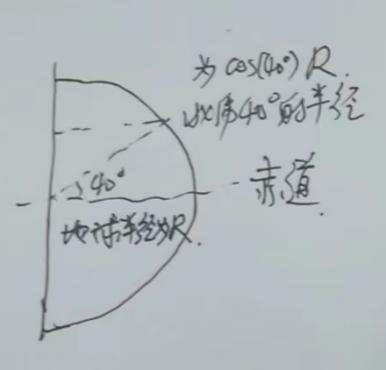 为 cos(40°) R.
北纬40°的半径
40°
赤道
地球半径为R.